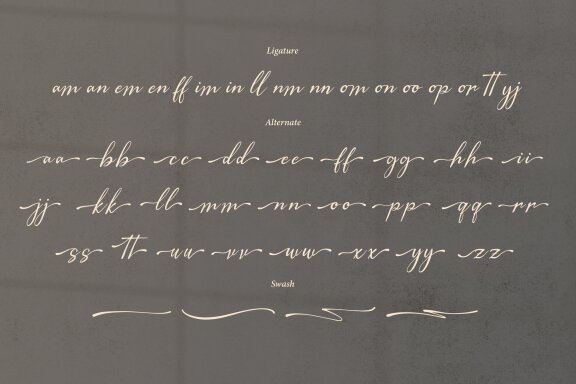 Ligature
am an em en ff im in ll nm nn om on oo op or tt yj
Alternate
aa bb cc dd ee ff gg hh ii
jj kk ll mm nn oo pp qq rr
ss tt uu vv ww xx yy zz
Swash